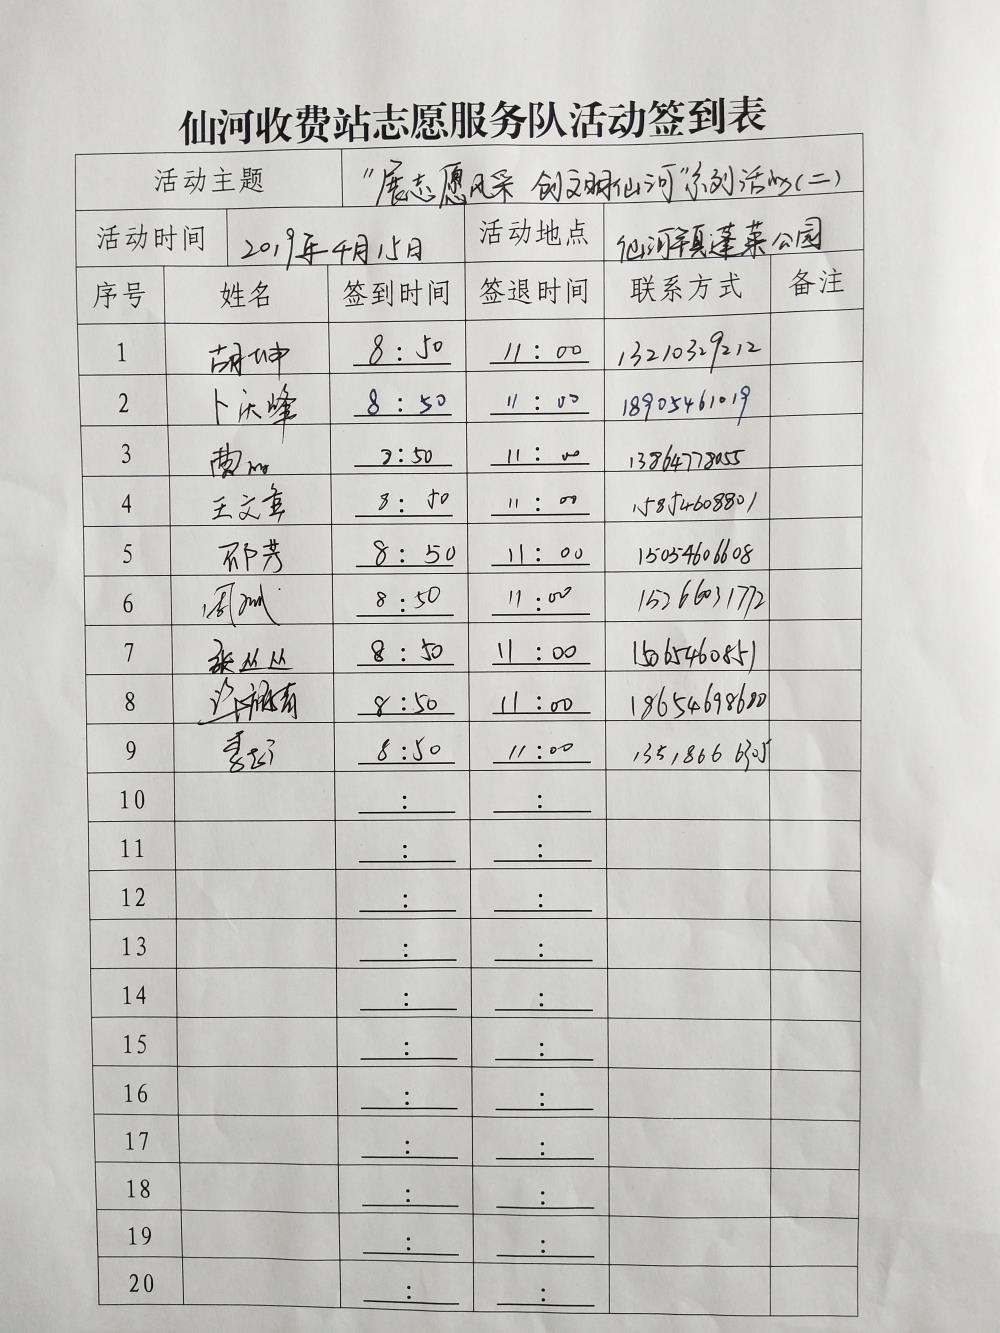 仙河收费站志愿服务队活动签到表
活动主题 "展志愿风采 创文明仙河"系列活动(二)
活动时间 2019年4月15日 活动地点 仙河镇蓬莱公园
序号 姓名 签到时间 签退时间 联系方式 备注
1 胡坤 8:50 11:00 13210329212
2 卜庆峰 8:50 11:00 18905461019
3 曹 8:50 11:00 13864778055
4 王文 8:50 11:00 15854608801
5 邴芳 8:50 11:00 15054606608
6 周 8:50 11:00 15266031772
7 张丛丛 8:50 11:00 15065460851
8 8:50 11:00 18654698680
9 8:50 11:00 13518666305
10 : :
11 : :
12 : :
13 : :
14 : :
15 : :
16 : :
17 : :
18 : :
19 : :
20 : :